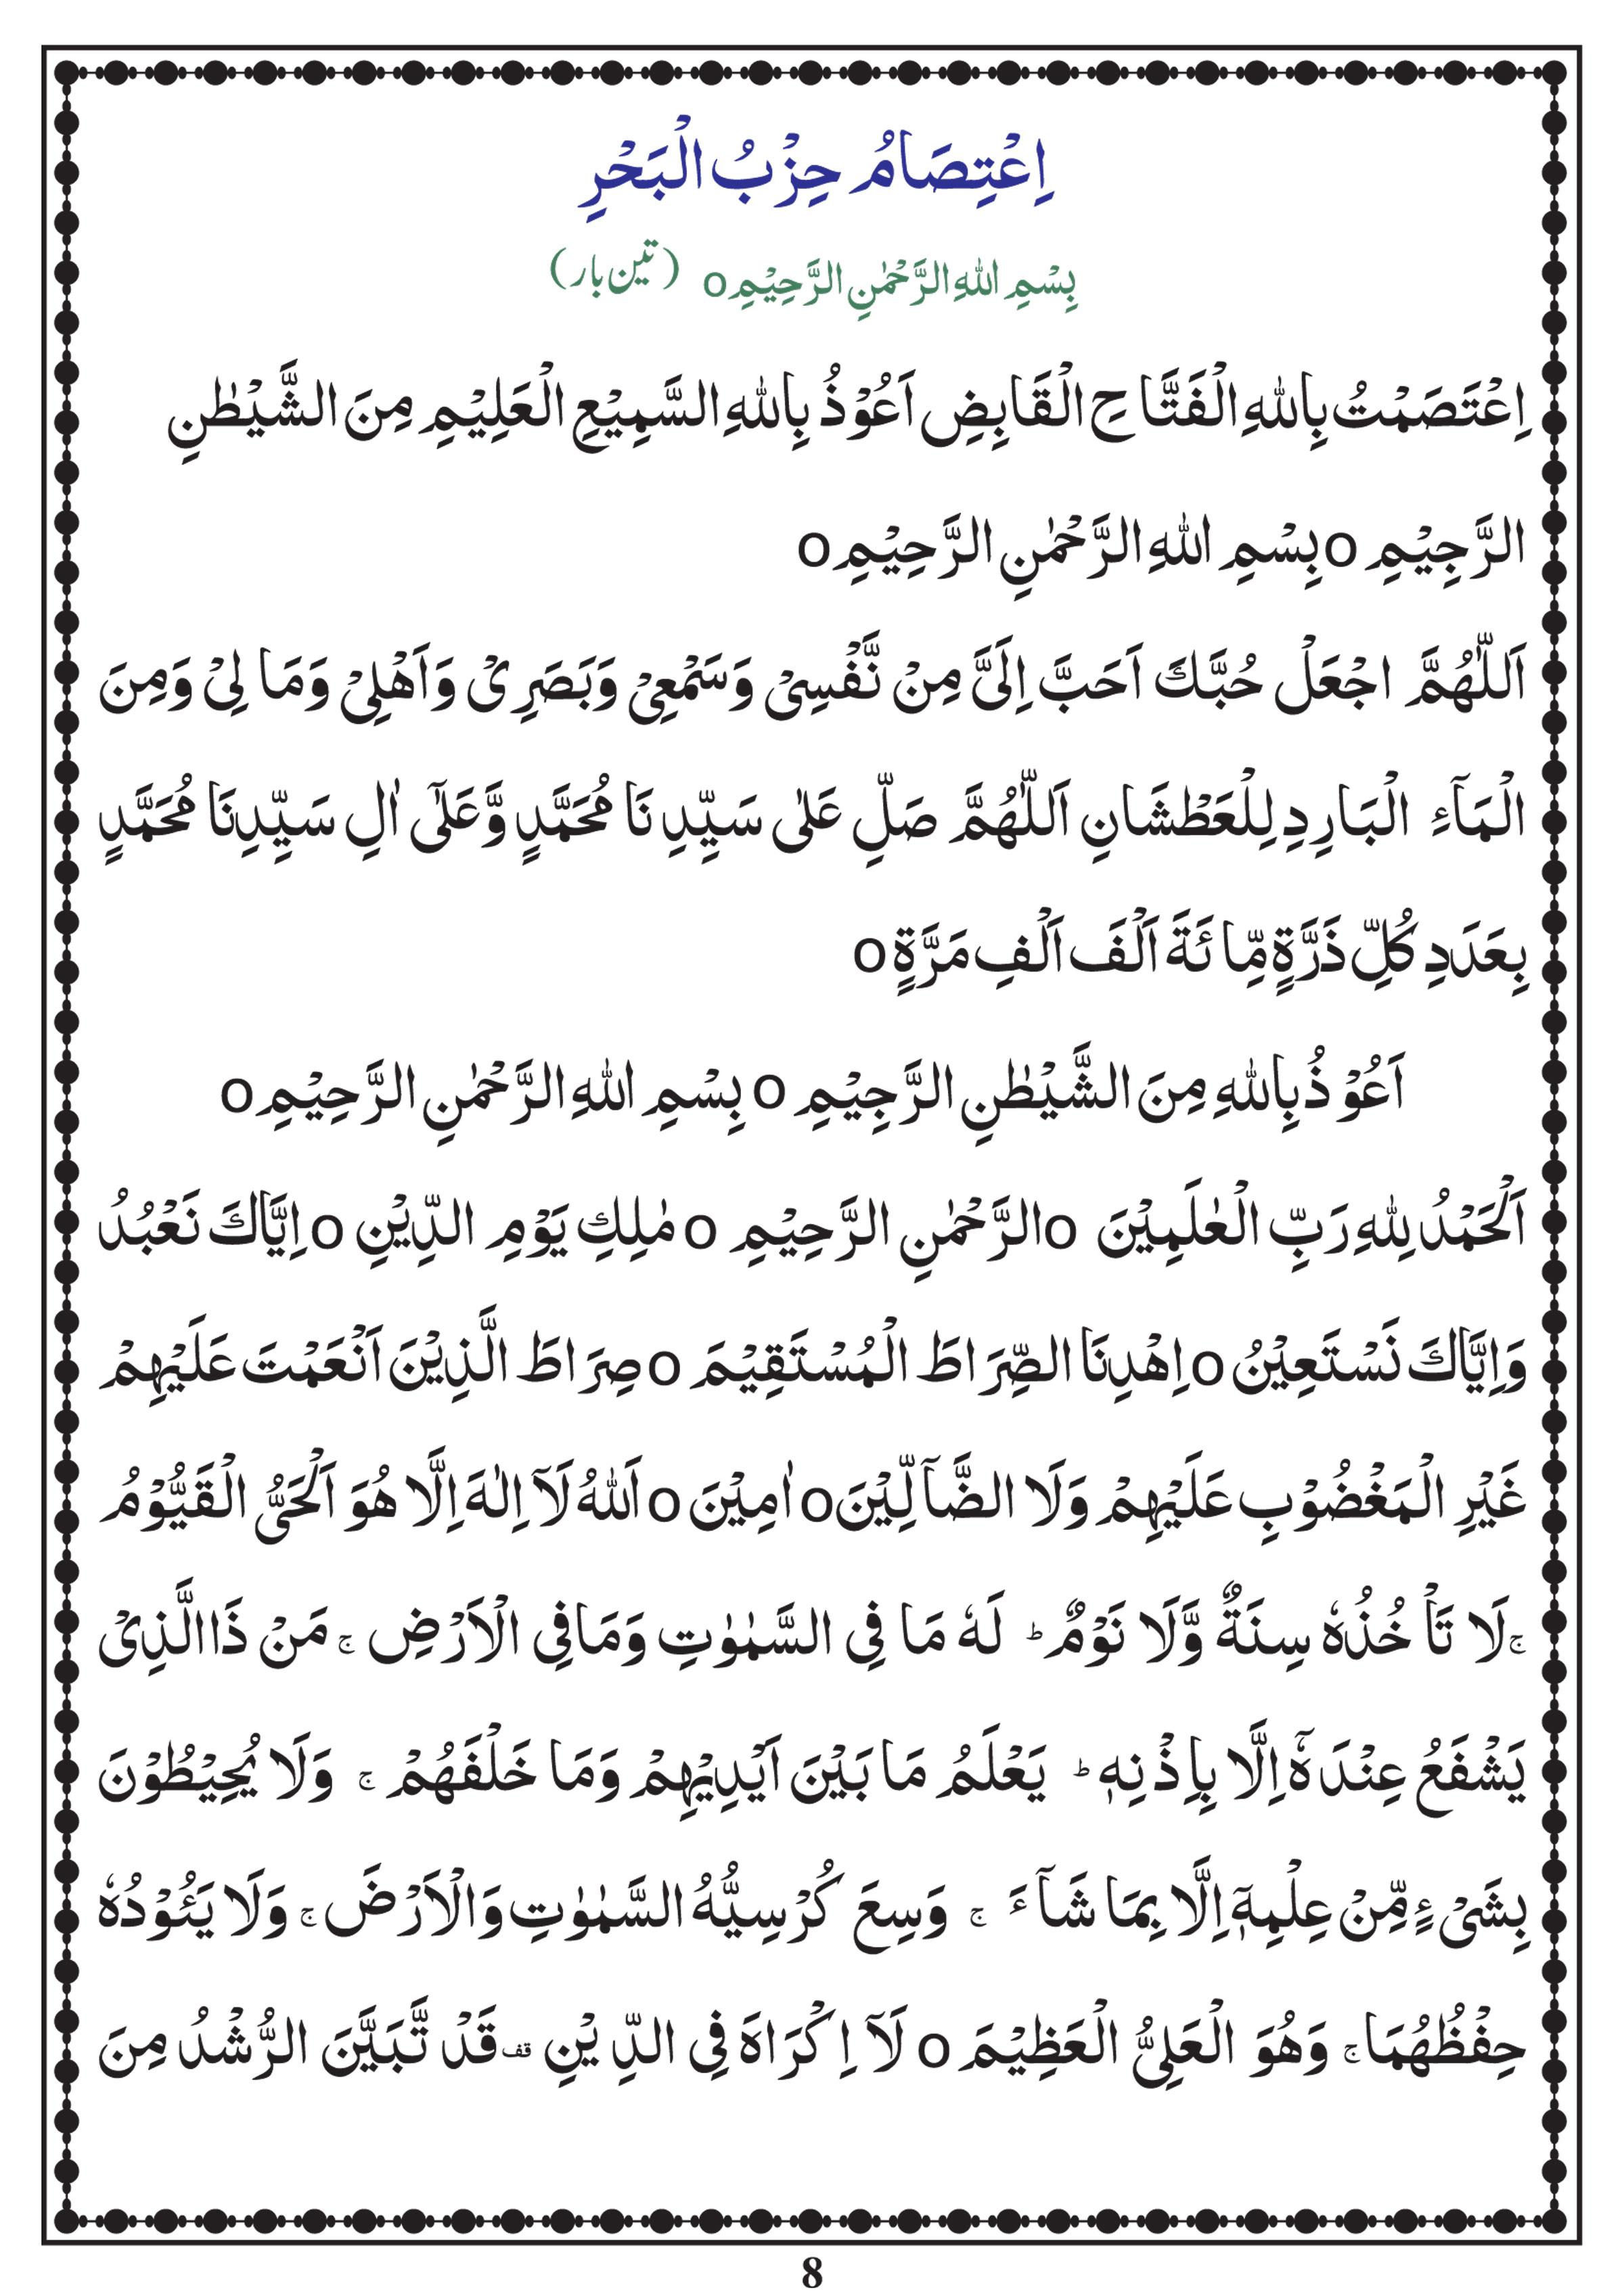 اِعْتِصَامُ حِزْبُ الْبَحْرِ
بِسْمِ اللهِ الرَّحْمٰنِ الرَّحِيْمِ o (تین بار)
اِعْتَصَمْتُ بِاللهِ الْفَتَّاحِ الْقَابِضِ اَعُوْذُ بِاللهِ السَّمِيْعِ الْعَلِيْمِ مِنَ الشَّيْطٰنِ
الرَّجِيْمِ o بِسْمِ اللهِ الرَّحْمٰنِ الرَّحِيْمِ o
اَللّٰهُمَّ اجْعَلْ حُبَّكَ اَحَبَّ اِلَىَّ مِنْ نَّفْسِىْ وَسَمْعِىْ وَبَصَرِىْ وَاَهْلِىْ وَمَا لِىْ وَمِنَ
الْمَآءِ الْبَارِدِ لِلْعَطْشَانِ اَللّٰهُمَّ صَلِّ عَلٰى سَيِّدِ نَا مُحَمَّدٍ وَّعَلٰٓى اٰلِ سَيِّدِنَا مُحَمَّدٍ
بِعَدَدِ كُلِّ ذَرَّةٍ مِّا ئَةَ اَلْفَ اَلْفِ مَرَّةٍ o
اَعُوْ ذُبِاللهِ مِنَ الشَّيْطٰنِ الرَّجِيْمِ o بِسْمِ اللهِ الرَّحْمٰنِ الرَّحِيْمِ o
اَلْحَمْدُ لِلهِ رَبِّ الْعٰلَمِيْنَ o الرَّحْمٰنِ الرَّحِيْمِ o مٰلِكِ يَوْمِ الدِّيْنِ o اِيَّاكَ نَعْبُدُ
وَاِيَّاكَ نَسْتَعِيْنُ o اِهْدِنَا الصِّرَاطَ الْمُسْتَقِيْمَ o صِرَاطَ الَّذِيْنَ اَنْعَمْتَ عَلَيْهِمْ
غَيْرِ الْمَغْضُوْبِ عَلَيْهِمْ وَلَا الضَّآلِّيْنَ o اٰمِيْنَ o اَللهُ لَآ اِلٰهَ اِلَّا هُوَ اَلْحَىُّ الْقَيُّوْمُ
ۚ لَا تَاْ خُذُهٗ سِنَةٌ وَّلَا نَوْمٌ ؕ لَهٗ مَا فِى السَّمٰوٰتِ وَمَافِى الْاَرْضِ ۚ مَنْ ذَاالَّذِىْ
يَشْفَعُ عِنْدَهٗٓ اِلَّا بِاِذْنِهٖ ؕ يَعْلَمُ مَا بَيْنَ اَيْدِيْهِمْ وَمَا خَلْفَهُمْ ۚ وَلَا يُحِيْطُوْنَ
بِشَىْءٍ مِّنْ عِلْمِهٖٓ اِلَّا بِمَا شَآءَ ۚ وَسِعَ كُرْسِيُّهُ السَّمٰوٰتِ وَالْاَرْضَ ۚ وَلَا يَئُوْدُهٗ
حِفْظُهُمَا ۚ وَهُوَ الْعَلِىُّ الْعَظِيْمَ o لَآ اِكْرَاهَ فِى الدِّ يْنِ قف قَدْ تَّبَيَّنَ الرُّشْدُ مِنَ
8